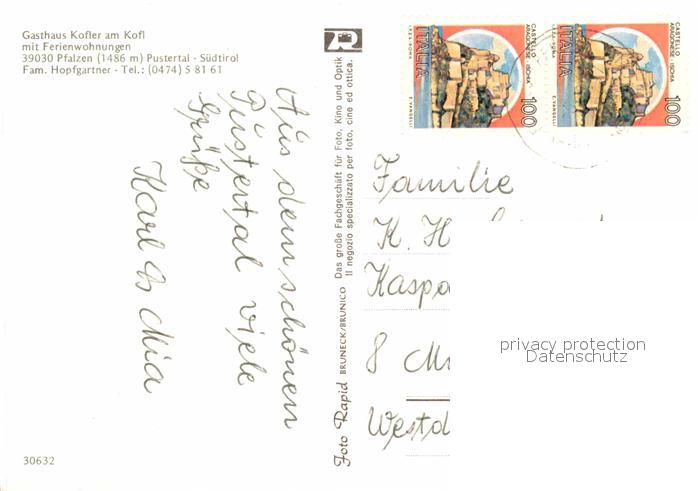 Gasthaus Kofler am Kofl
mit Ferienwohnungen
39030 Pfalzen (1486 m) Pustertal - Südtirol
Fam. Hopfgartner - Tel.: (0474) 5 81 61
Aus dem schönen
Pustertal viele
Grüße
Karl & Mia
30632
Foto Rapid BRUNECK/BRUNICO
Das große Fachgeschäft für Foto, Kino und Optik
Il negozio specializzato per foto, cine ed ottica.
CASTELLO
ARAGONESE - ISCHIA
100
ITALIA
I.P.Z.S. - ROMA
E. VANGELLI
CASTELLO
ARAGONESE - ISCHIA
100
ITALIA
I.P.Z.S. - ROMA
E. VANGELLI
Familie
K. H
Kaspa
8 Mü
Westd
privacy protection
Datenschutz